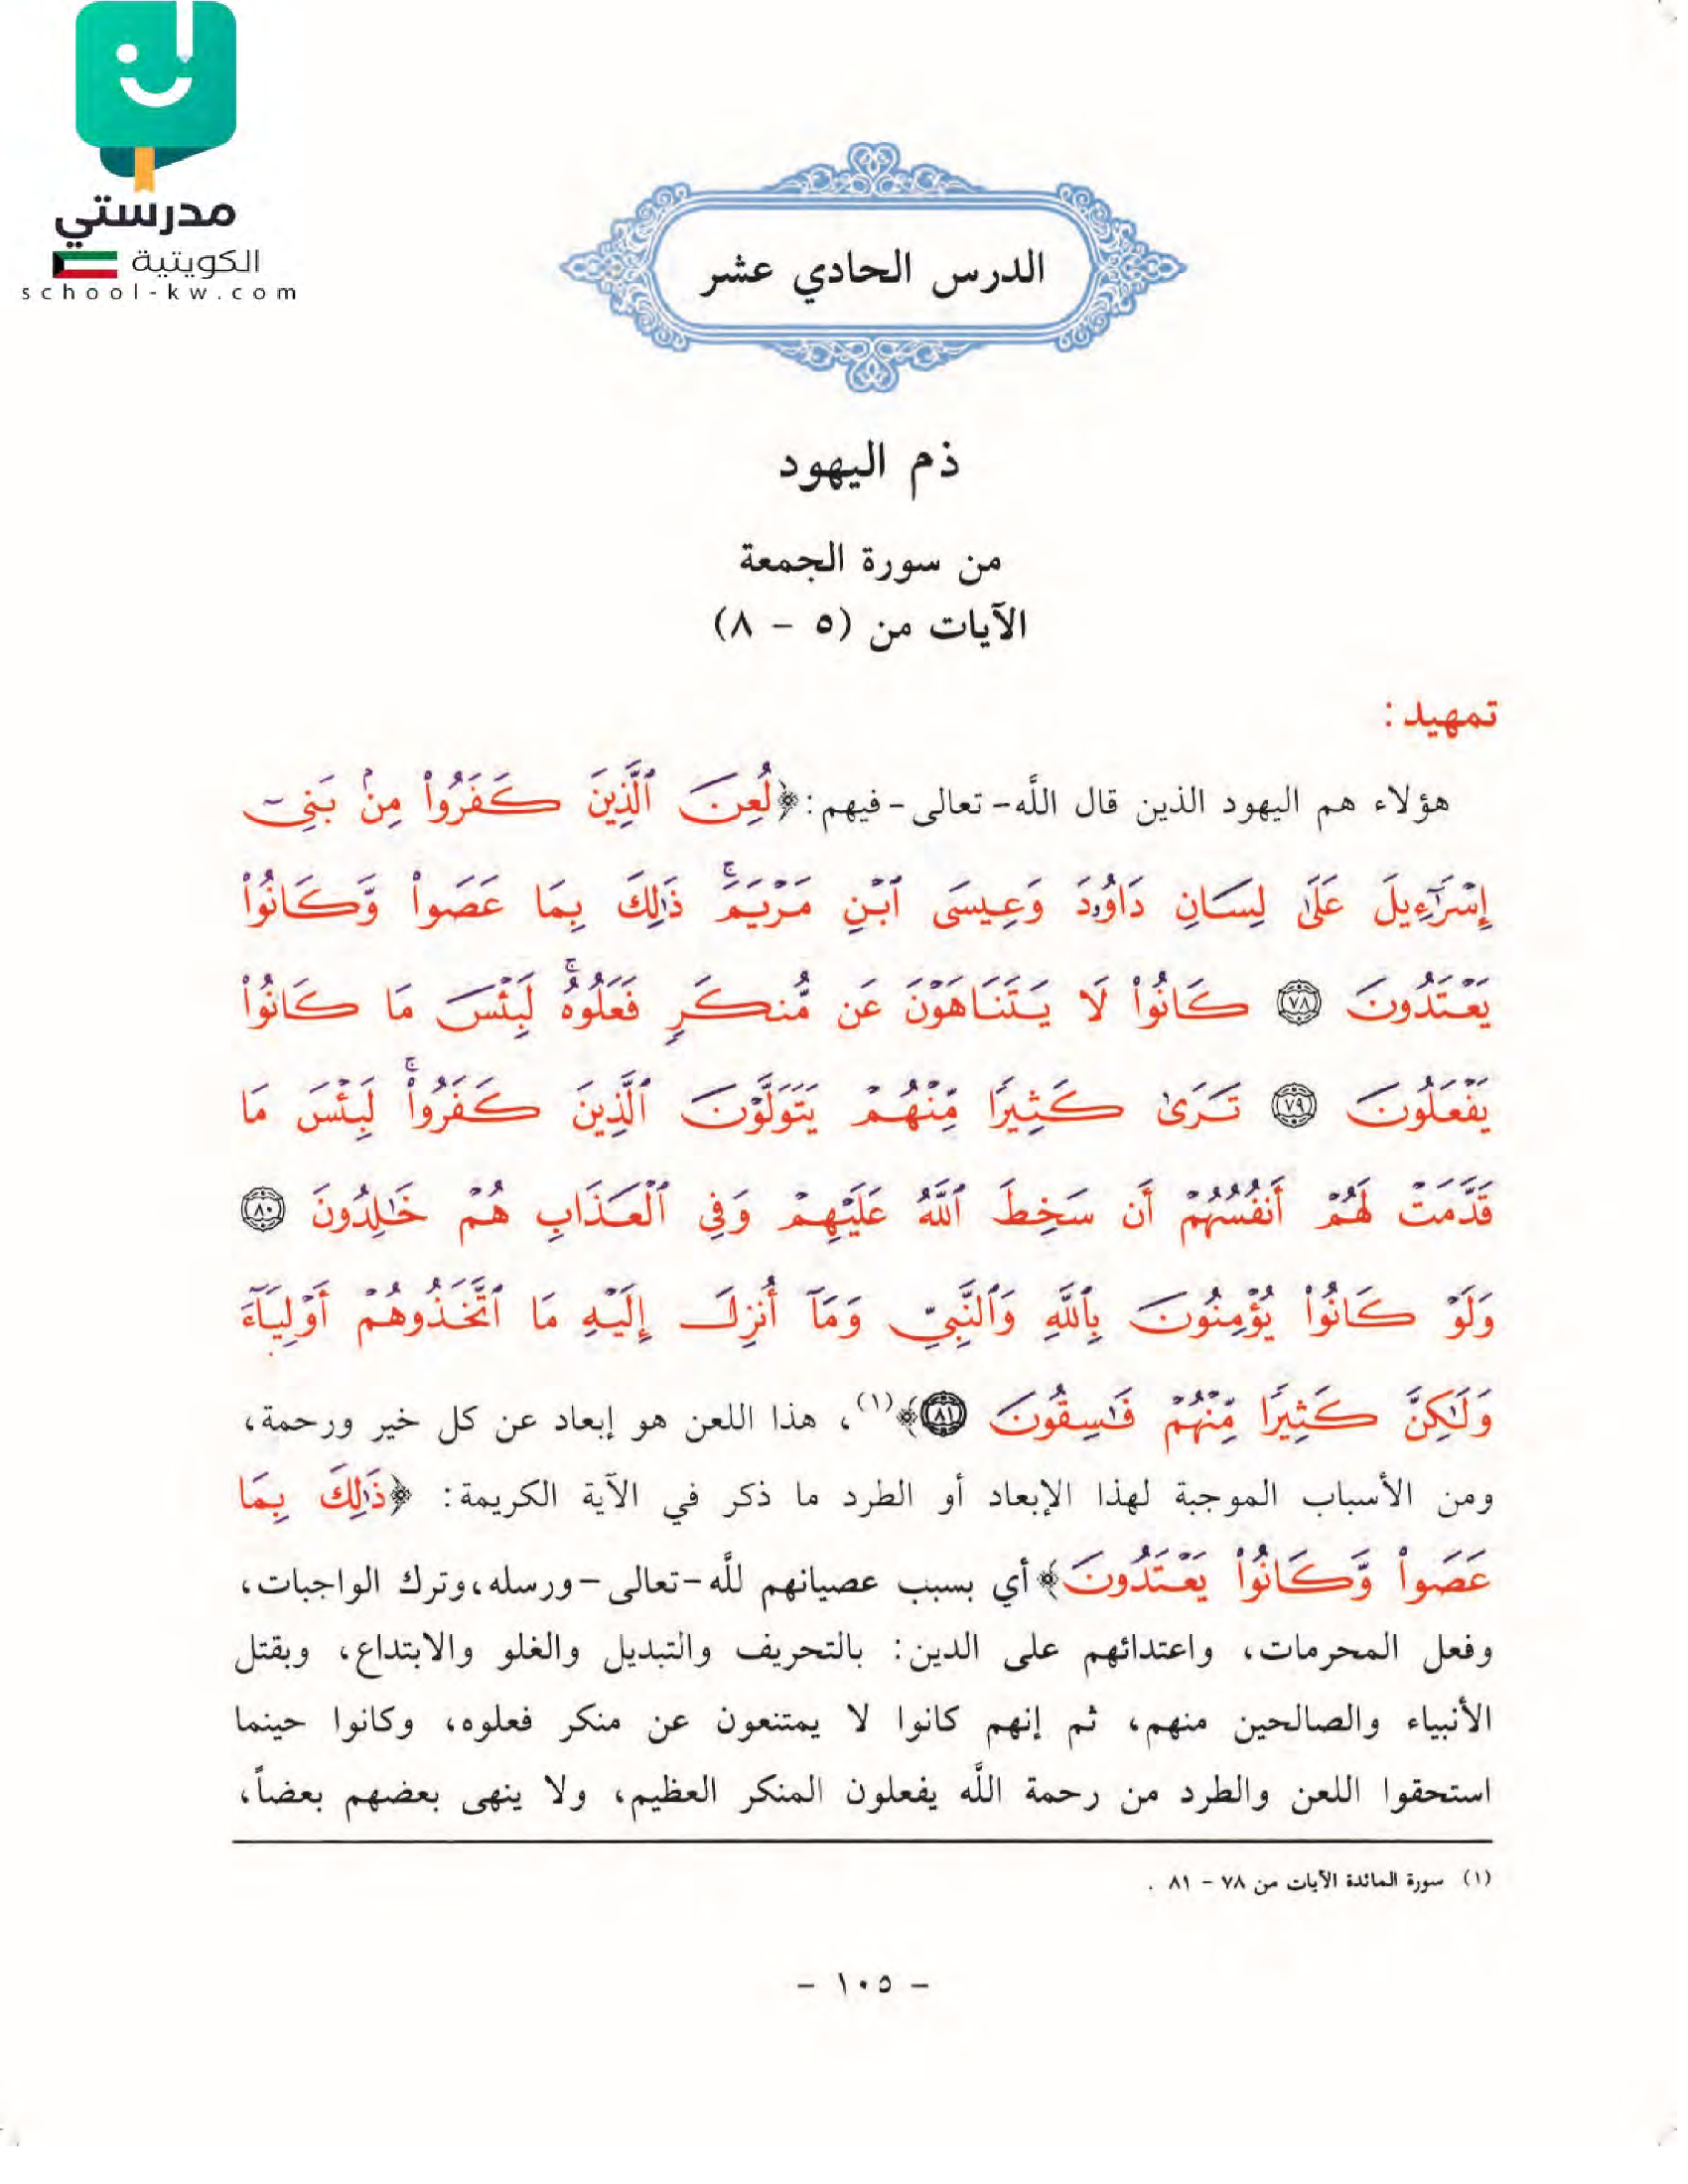 مدرستي
الكويتية
school-kw.com
الدرس الحادي عشر
ذم اليهود
من سورة الجمعة
الآيات من (٥ - ٨)
تمهيد :
هؤلاء هم اليهود الذين قال اللَّه- تعالى -فيهم: ﴿لُعِنَ ٱلَّذِينَ كَفَرُوا۟ مِنۢ بَنِىٓ
إِسْرَٰٓءِيلَ عَلَىٰ لِسَانِ دَاوُۥدَ وَعِيسَى ٱبْنِ مَرْيَمَ ۚ ذَٰلِكَ بِمَا عَصَوا۟ وَّكَانُوا۟
يَعْتَدُونَ ٧٨ كَانُوا۟ لَا يَتَنَاهَوْنَ عَن مُّنكَرٍ فَعَلُوهُ ۚ لَبِئْسَ مَا كَانُوا۟
يَفْعَلُونَ ٧٩ تَرَىٰ كَثِيرًا مِّنْهُمْ يَتَوَلَّوْنَ ٱلَّذِينَ كَفَرُوا۟ ۚ لَبِئْسَ مَا
قَدَّمَتْ لَهُمْ أَنفُسُهُمْ أَن سَخِطَ ٱللَّهُ عَلَيْهِمْ وَفِى ٱلْعَذَابِ هُمْ خَٰلِدُونَ ٨٠
وَلَوْ كَانُوا۟ يُؤْمِنُونَ بِٱللَّهِ وَٱلنَّبِىِّ وَمَآ أُنزِلَ إِلَيْهِ مَا ٱتَّخَذُوهُمْ أَوْلِيَآءَ
وَلَٰكِنَّ كَثِيرًا مِّنْهُمْ فَٰسِقُونَ ٨١﴾(١)، هذا اللعن هو إبعاد عن كل خير ورحمة،
ومن الأسباب الموجبة لهذا الإبعاد أو الطرد ما ذكر في الآية الكريمة: ﴿ذَٰلِكَ بِمَا
عَصَوا۟ وَّكَانُوا۟ يَعْتَدُونَ﴾ أي بسبب عصيانهم للَّه-تعالى-ورسله،وترك الواجبات،
وفعل المحرمات، واعتدائهم على الدين: بالتحريف والتبديل والغلو والابتداع، وبقتل
الأنبياء والصالحين منهم، ثم إنهم كانوا لا يمتنعون عن منكر فعلوه، وكانوا حينما
استحقوا اللعن والطرد من رحمة اللَّه يفعلون المنكر العظيم، ولا ينهى بعضهم بعضاً،
(١) سورة المائدة الآيات من ٧٨ - ٨١ .
- ١٠٥ -